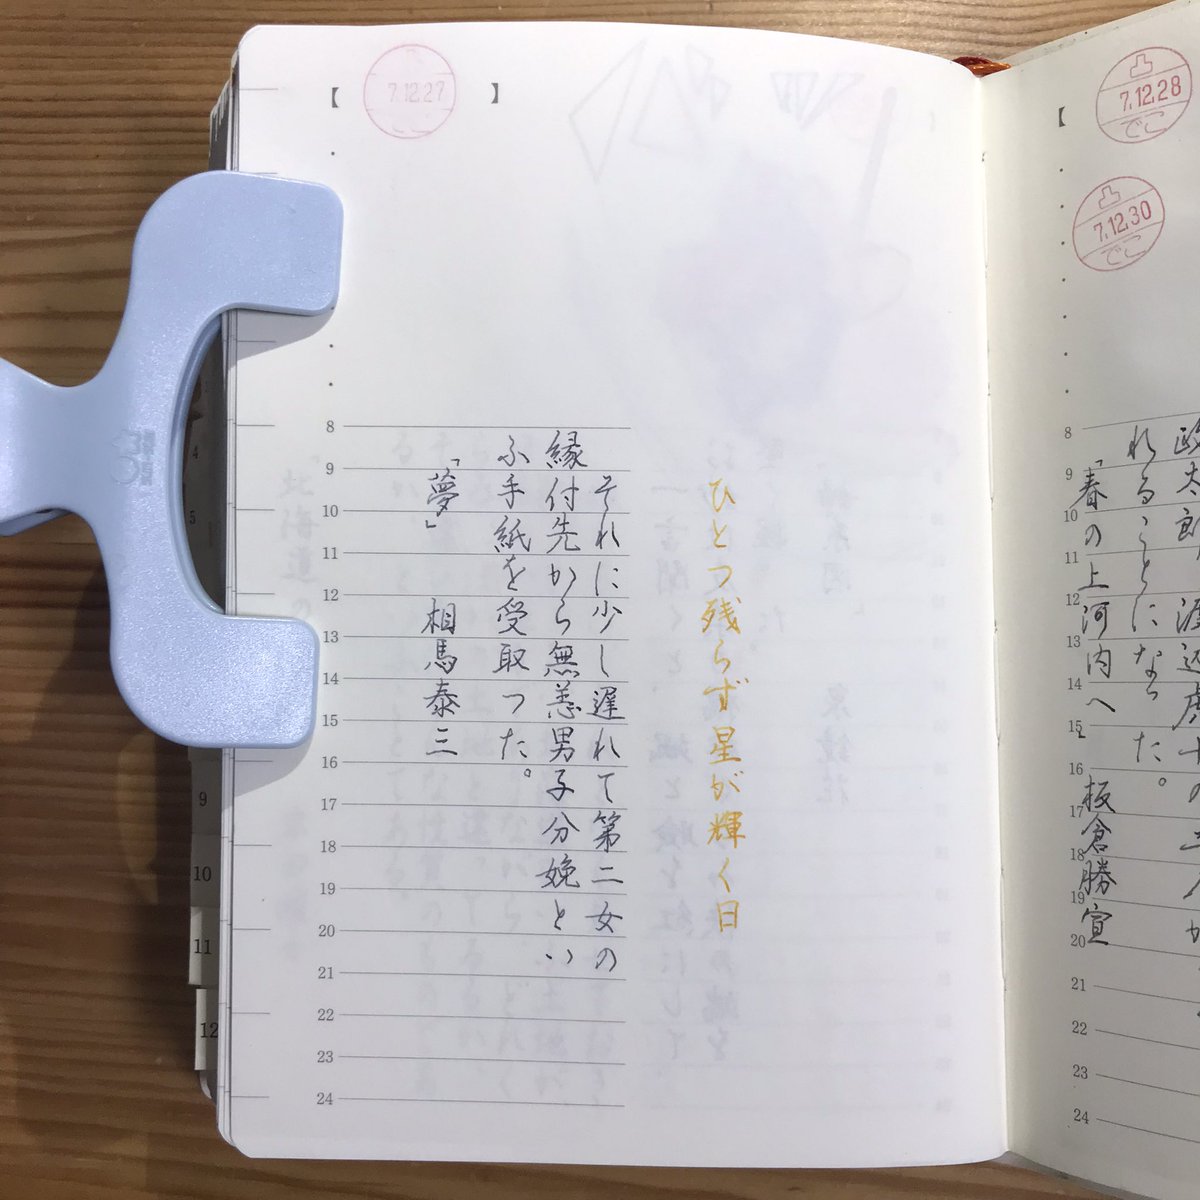 7.12.27
でこ
【 】
ひとつ残らず星が輝く日
それに少し遅れて第二女の
縁付先から無恙男子分娩とい
ふ手紙を受取つた。
「夢」 相馬泰三
8
9
10
11
12
13
14
15
16
17
18
19
20
21
22
23
24
4
5
9
10
11
12
凸
7.12.28
でこ
【
凸
7.12.30
でこ
政太郎、渡辺
れることになった。
「春の上河内へ」 板倉勝宣
8
9
10
11
12
13
14
15
16
17
18
19
20
21
22
23
24